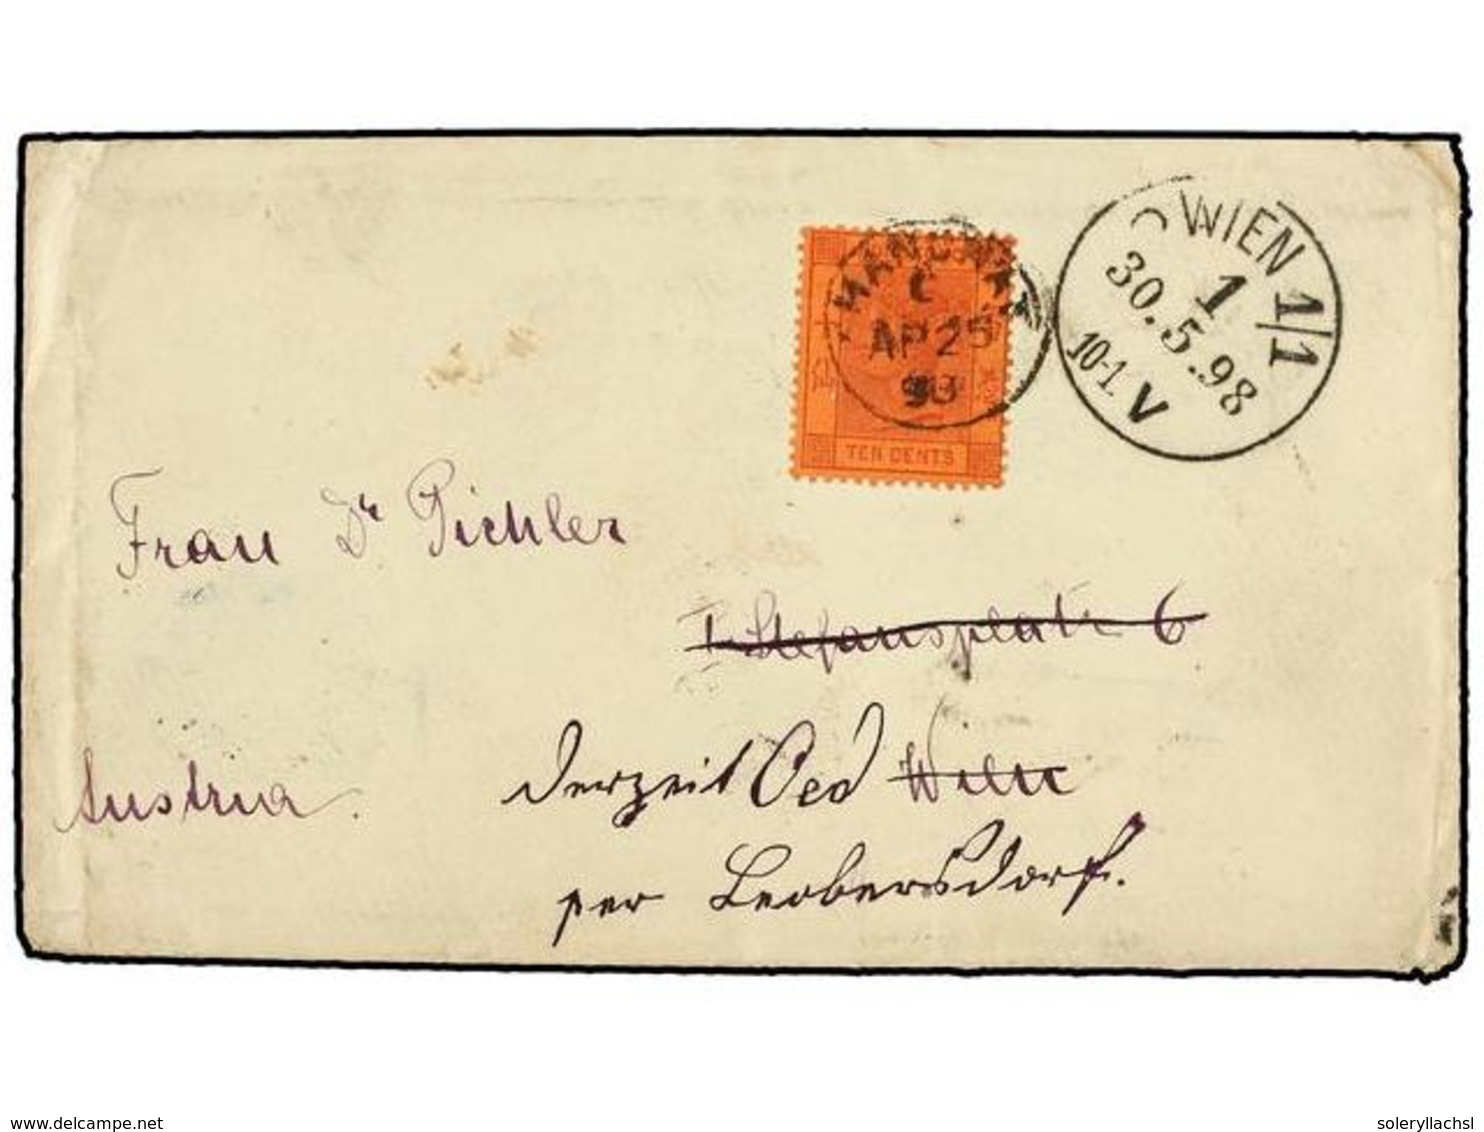 WIEN 1/1
1
30.5.98
10-1. V
C
AP 25
98
TEN CENTS
Frau Dr Pichler
I Stefansplatz 6
Austria.
derzeit Oed Wien
per Leobersdorf.
delcampe.net
soleryllachsl